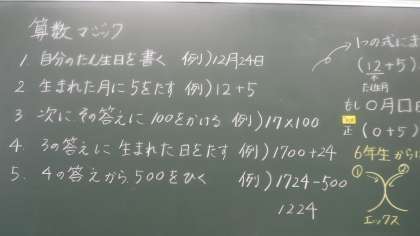 算数マジック
1. 自分のたん生日を書く 例)12月24日
2 生まれた月に5をたす 例)12+5
3 次にその答えに100をかける 例)17×100
4. 3の答えに生まれた日をたす 例)1700+24
5. 4の答えから500をひく 例)1724-500
1224
1つの式にま
(12+5)
たん生月
もし0月口
正 (0+5)
6年生から
① ②
エックス